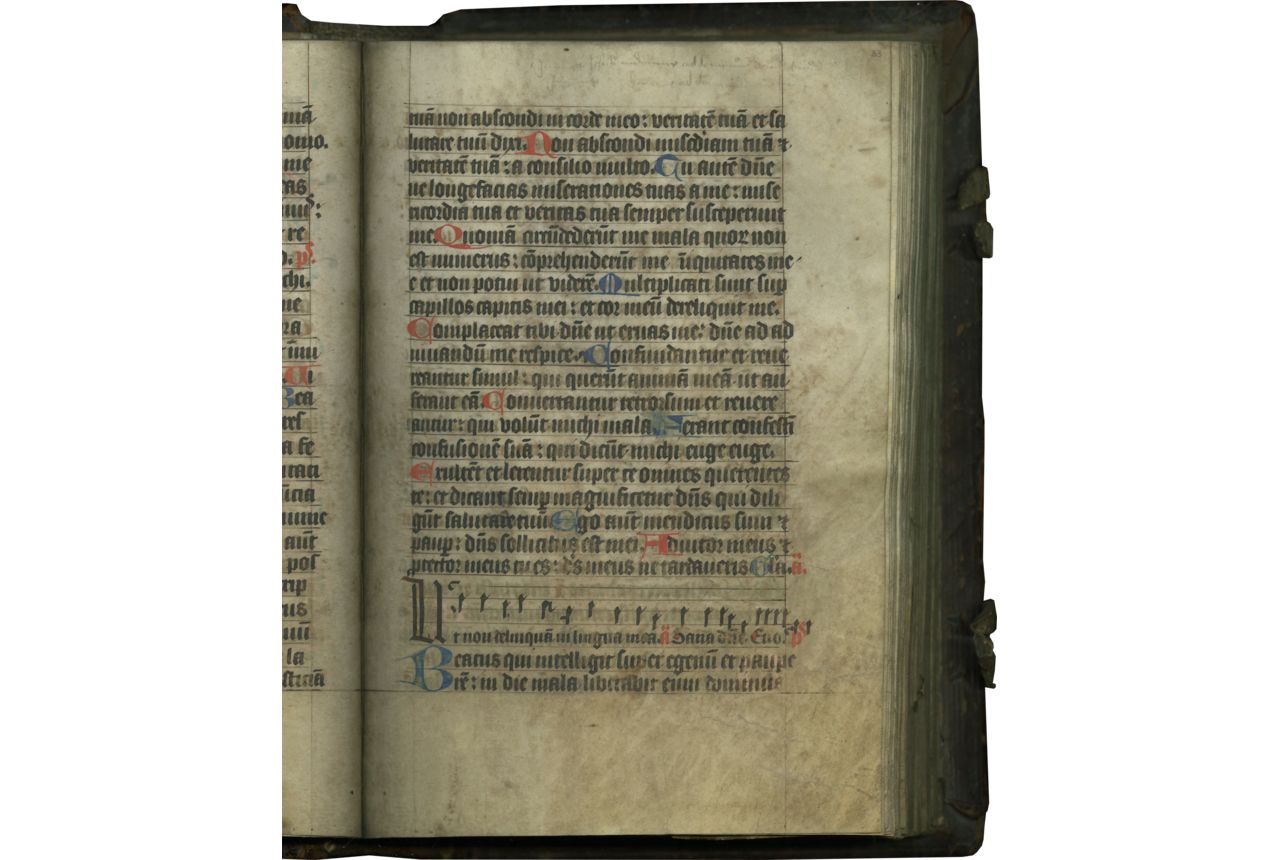 tuā non abscondi in corde meo : veritatē tuā et sa
lutare tuū dixi. Non abscondi miscdiam tuā ⁊
veritatē tuā : a consilio multo. Tu autē dn̄e
ne longefacias miserationes tuas a me : mise
ricordia tua et veritas tua semper susceperunt
me. Quoniā circūdederūt me mala quoꝝ non
est numerus : cōprehenderūt me iniquitates me
e et non potui ut viderē. Multiplicati sunt sup
capillos capitis mei : et cor meū dereliquit me.
Complaceat tibi dn̄e ut eruas me : dn̄e ad ad
iuuandū me respice. Confundantur et reue
reantur simul : qui querūt animā meā ut au
ferant eā. Conuertantur retrorsum et reuere
antur : qui volūt michi mala. Ferant confesti
confusionē suā : qui dicūt michi euge euge.
Exultēt et letentur super te omnes querentes
te : et dicant semp magnificetur dn̄s qui dili
gūt salutare tuū. Ego aūt mendicus sum ⁊
paup : dn̄s sollicitus est mei. Adiutor meus ⁊
ꝓtector meus tu es : ds̄ meus ne tardaueris. Gl̄a. ā.
Ut non delinquā in lingua mea. ā Sana dn̄e. Euoꝝ ps̄
Beatus qui intelligit super egenū et paupe
rē : in die mala liberabit eum dominus